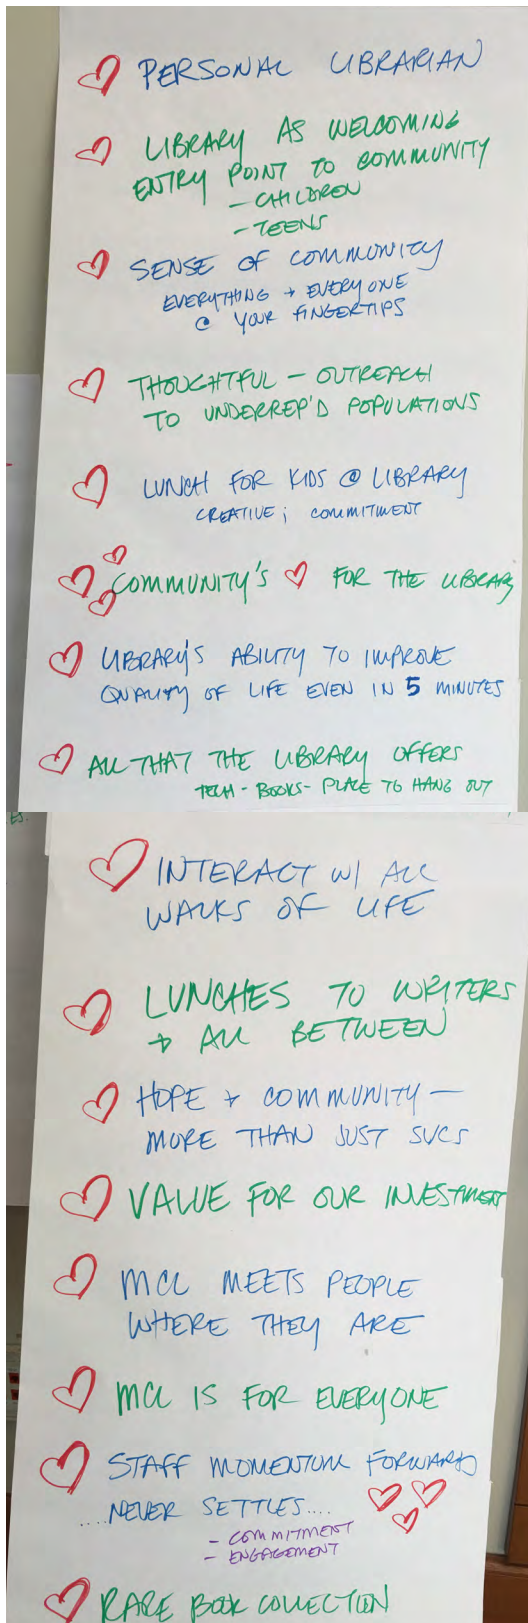 PERSONAL LIBRARIAN
LIBRARY AS WELCOMING
ENTRY POINT TO COMMUNITY
- CHILDREN
- TEENS
SENSE OF COMMUNITY
EVERYTHING + EVERYONE
@ YOUR FINGERTIPS
THOUGHTFUL - OUTREACH
TO UNDERREP'D POPULATIONS
LUNCH FOR KIDS @ LIBRARY
CREATIVE; COMMITMENT
COMMUNITY'S ♡ FOR THE LIBRARY
LIBRARY'S ABILITY TO IMPROVE
QUALITY OF LIFE EVEN IN 5 MINUTES
ALL THAT THE LIBRARY OFFERS
TECH - BOOKS - PLACE TO HANG OUT
INTERACT W/ ALL
WALKS OF LIFE
LUNCHES TO WRITERS
+ ALL BETWEEN
HOPE + COMMUNITY -
MORE THAN JUST SVCS
VALUE FOR OUR INVESTMENT
MCL MEETS PEOPLE
WHERE THEY ARE
MCL IS FOR EVERYONE
STAFF MOMENTUM FORWARD
....NEVER SETTLES....
- COMMITMENT
- ENGAGEMENT
RARE BOOK COLLECTION